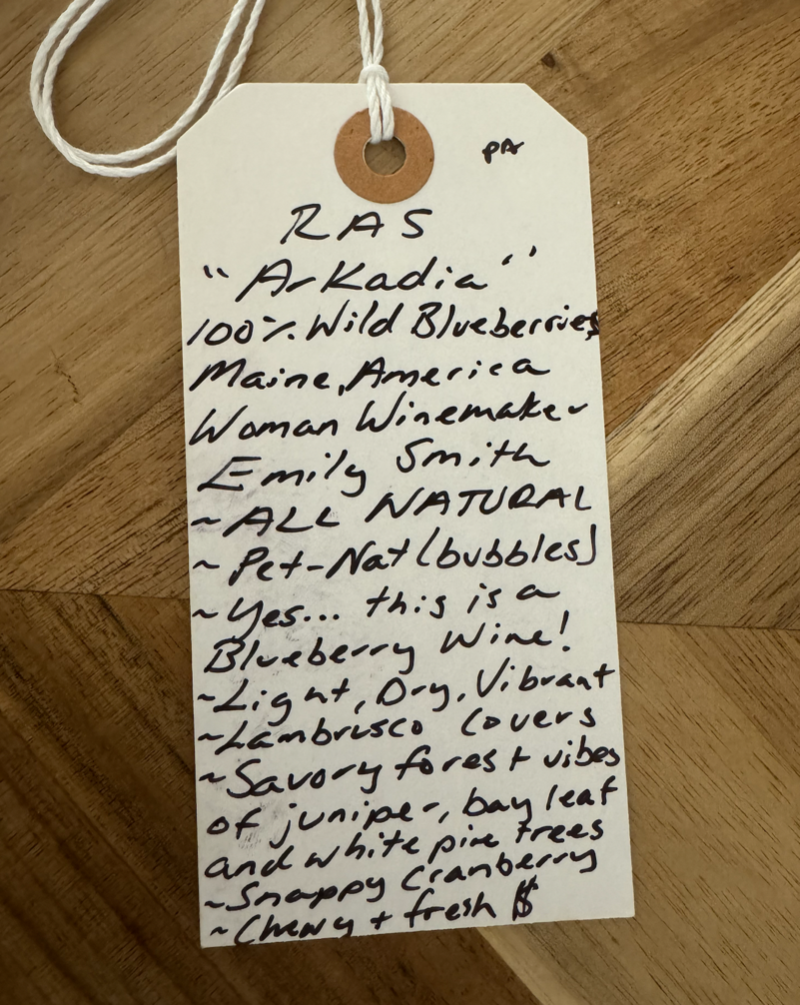 PA
RAS
"Arkadia"
100% Wild Blueberries
Maine, America
Woman Winemaker
Emily Smith
~ALL NATURAL
~Pet-Nat (bubbles)
~Yes... this is a
Blueberry Wine!
~Light, Dry, Vibrant
~Lambrusco Lovers
~Savory forest vibes
of juniper, bay leaf
and white pine trees
~Snappy Cranberry
~Chewy + fresh $